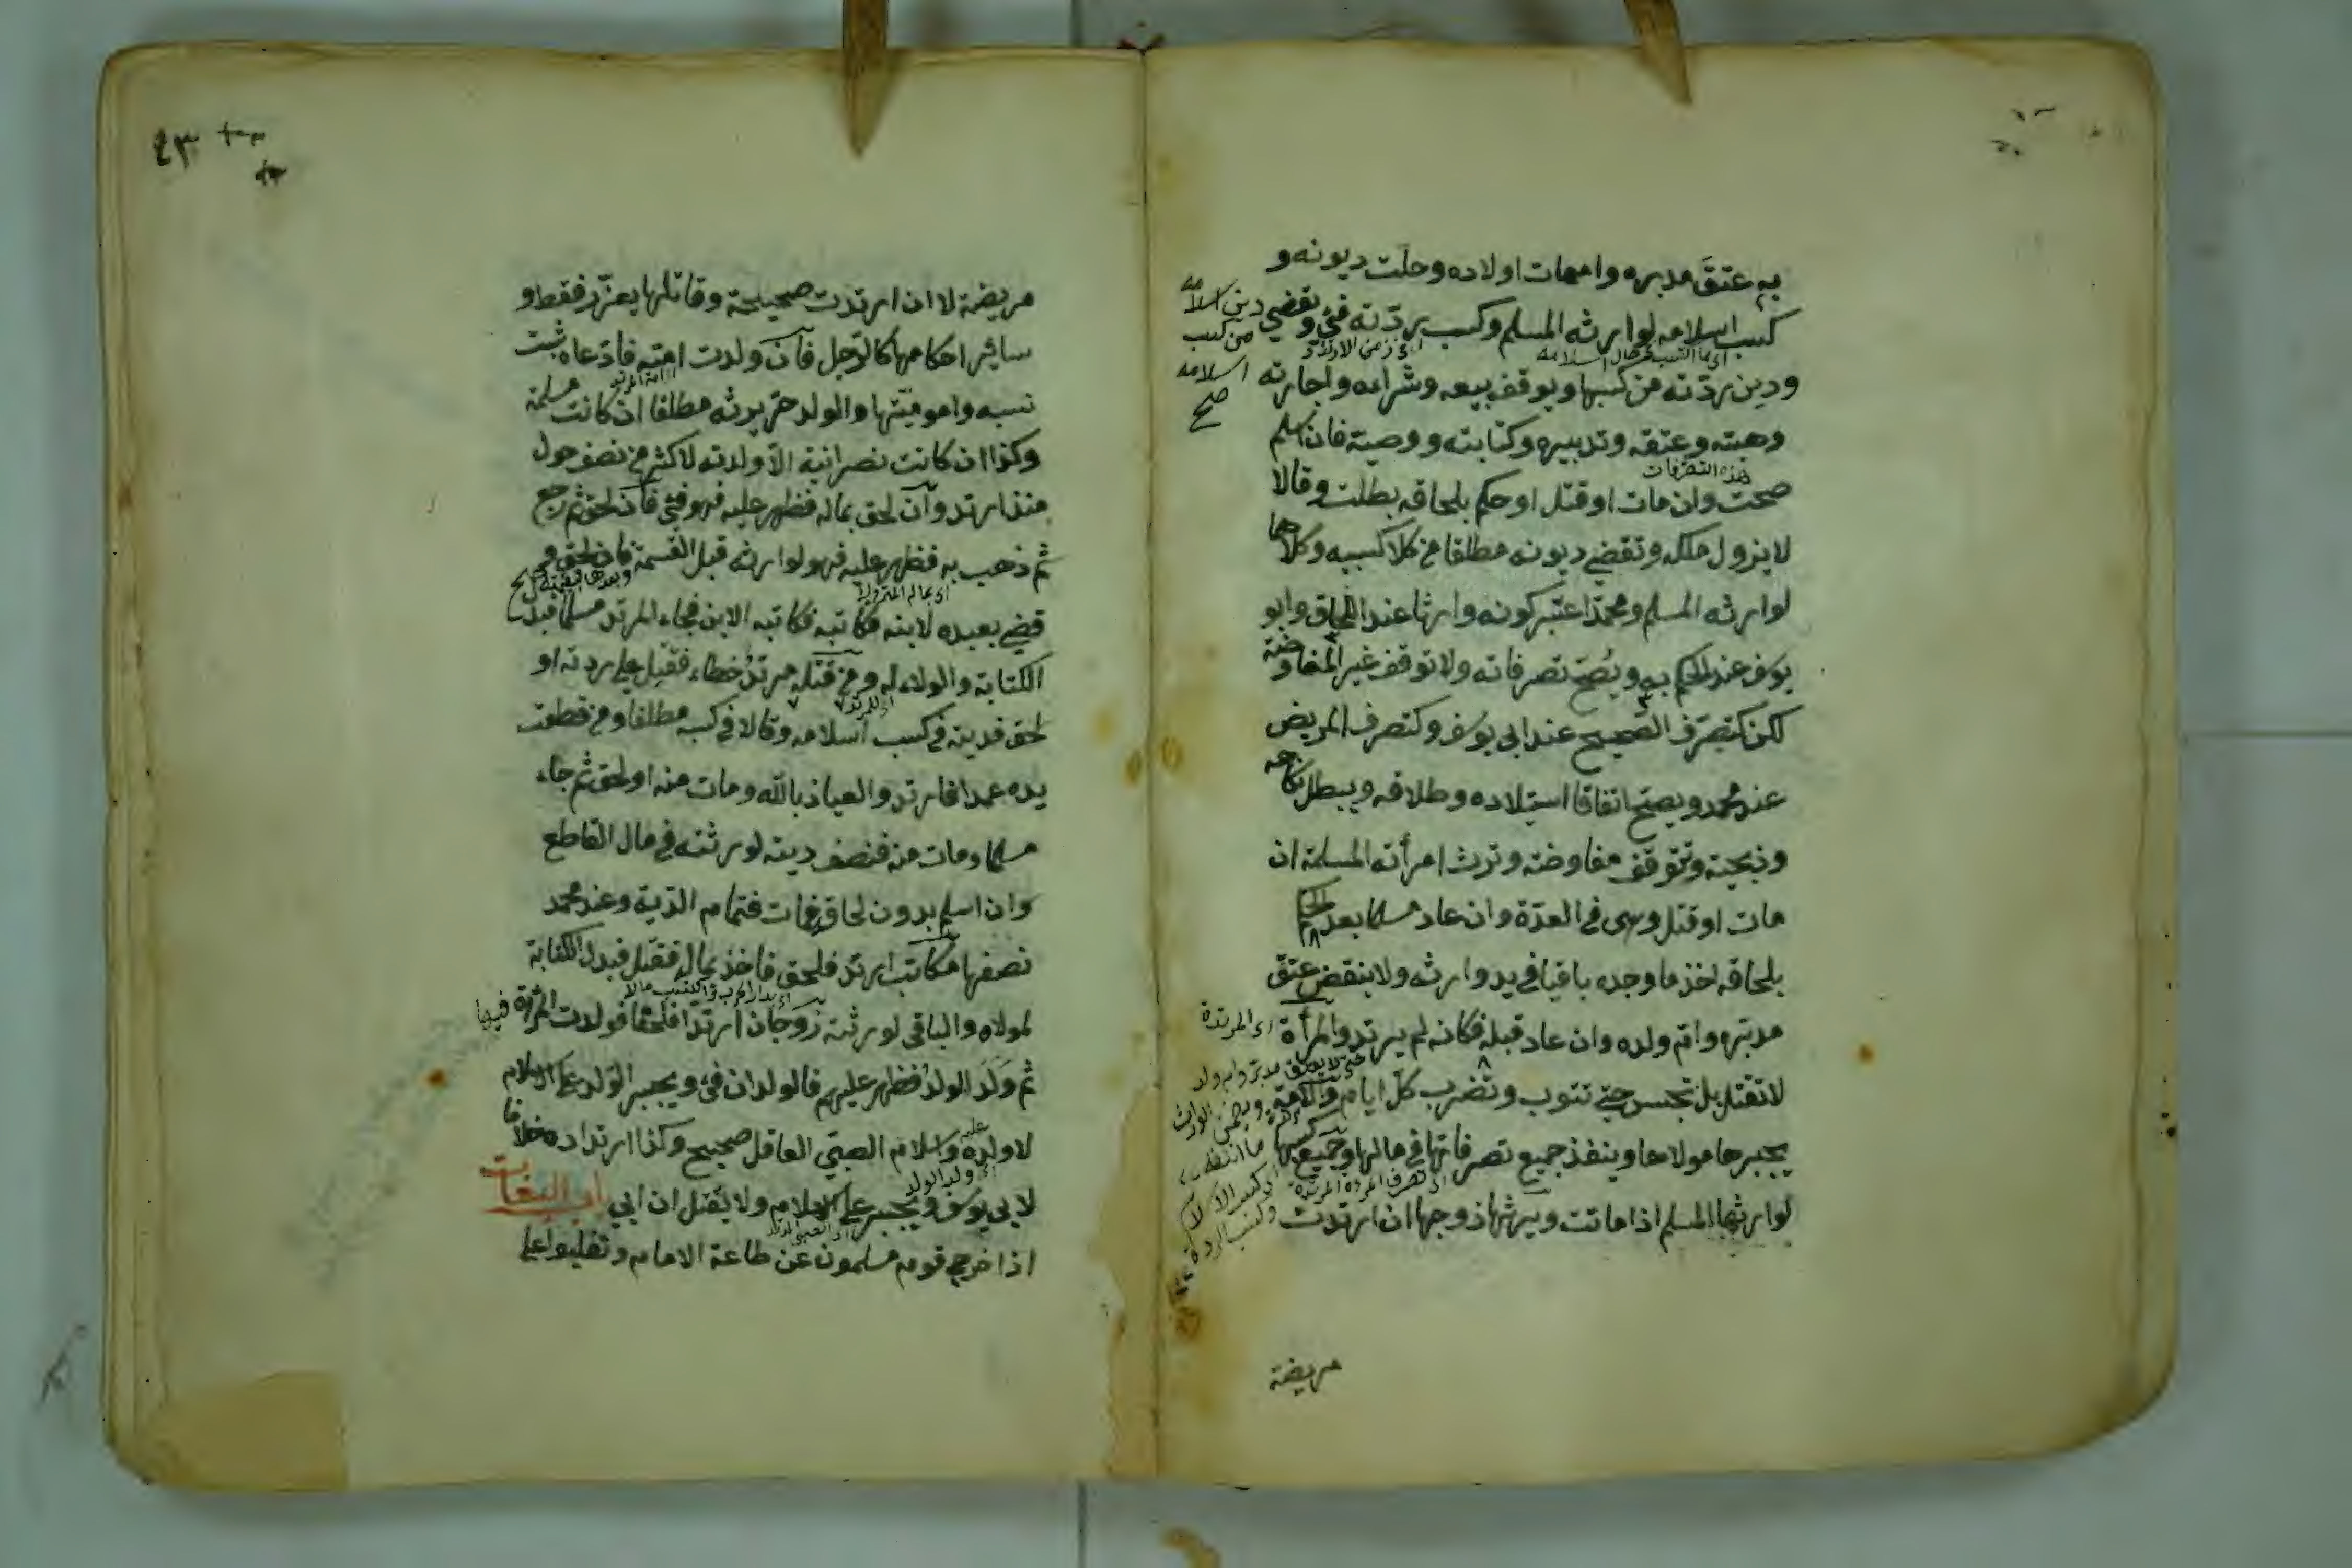 به عتق مدبره وامهات اولاده وحلت ديونه و
كسب اسلامه لوارثه المسلم وكسب ردّته فئ وتقضي دين اسلامه
من كسب
اسلامه
صح
ودين ردّته من كسبها ويوقف بيعه وشراءه واجارته
وهبته وعتقه وتدبيره وكتابته ووصيته فان اسلم
هذه التصرفات
صحت وان مات او قتل او حكم بلحاقه بطلت وقالا
لا يزول ملكه وتقضي ديونه مطلقا من كلا كسبيه وكلاهما
لوارثه المسلم ومحمد اعتبر كونه وارثا عند اللحاق وابو
يوسف عند الحكم به ويصح تصرفاته ولا توقف غير المفاوضة
لكن كتصرف الصحيح عند ابي يوسف وكتصرف المريض
عند محمد ويصح اتفاقا استيلاده وطلاقه ويبطل نكاحه
وذبحته وتتوقف مفاوضته وترث امرأته المسلمة ان
مات او قتل وهى فى العدّة وان عاد مسلما بعد الحكم
بلحاقه اخذ ما وجده باقيا في يد وارثه ولا ينقض عتق
مدبره وام ولده وان عاد قبله فكانه لم يرتد والمرأة
اى المرتدة
لا تقتل بل تحبس حتى تتوب وتضرب كل ايام والامة
يجبرها مولاها وينفذ جميع تصرفاتها في مالها وجميع كسبها
لوارثها المسلم اذا ماتت ويرثها زوجها ان ارتدت
مريضة
٤٣
مريضة لا ان ارتدت صحيحة وقاتلها يعزر فقط و
سائر احكامها كالرجل فان ولدت امته فادعاه ثبت
نسبه واموميتها والولد حر يرثه مطلقا ان كانت مسلمة
وكذا ان كانت نصرانية الا ولدته لاكثر من نصف حول
منذ ارتد وان لحق بماله فظهر عليه فهو فئ فان لحق ثم رجع
ثم ذهب به فظهر عليه فهو لوارثه قبل القسمة فان لحق و
قضي بعبده لابنه فكاتبه فكاتبه الابن فجاء المرتد مسلما فبدل
الكتابة والولاء له ومن قتله مرتد خطاء فقتل على ردته او
لحق فديته في كسب اسلامه وقالا في كسبه مطلقا ومن قطعت
يده عمدا فارتد والعياذ بالله ومات منه او لحق ثم جاء
مسلما ومات منه فنصف ديته لورثته في مال القاطع
وان اسلم بدون لحاق فمات فتمام الدية وعند محمد
نصفها مكاتب ارتد فلحق فاخذ بماله فقتل فبدل الكتابة
لمولاه والباقى لورثته زوجان ارتدا فلحقا فولدت المرأة
ثم ولد الولد فظهر عليهم فالولدان فئ ويجبر الولد على الاسلام
لا ولده واسلام الصبي العاقل صحيح وكذا ارتداده خلافا
لابي يوسف ويجبر على الاسلام ولا يقتل ان ابي باب البغات
اذا خرج قوم مسلمون عن طاعة الامام وتغلبوا على